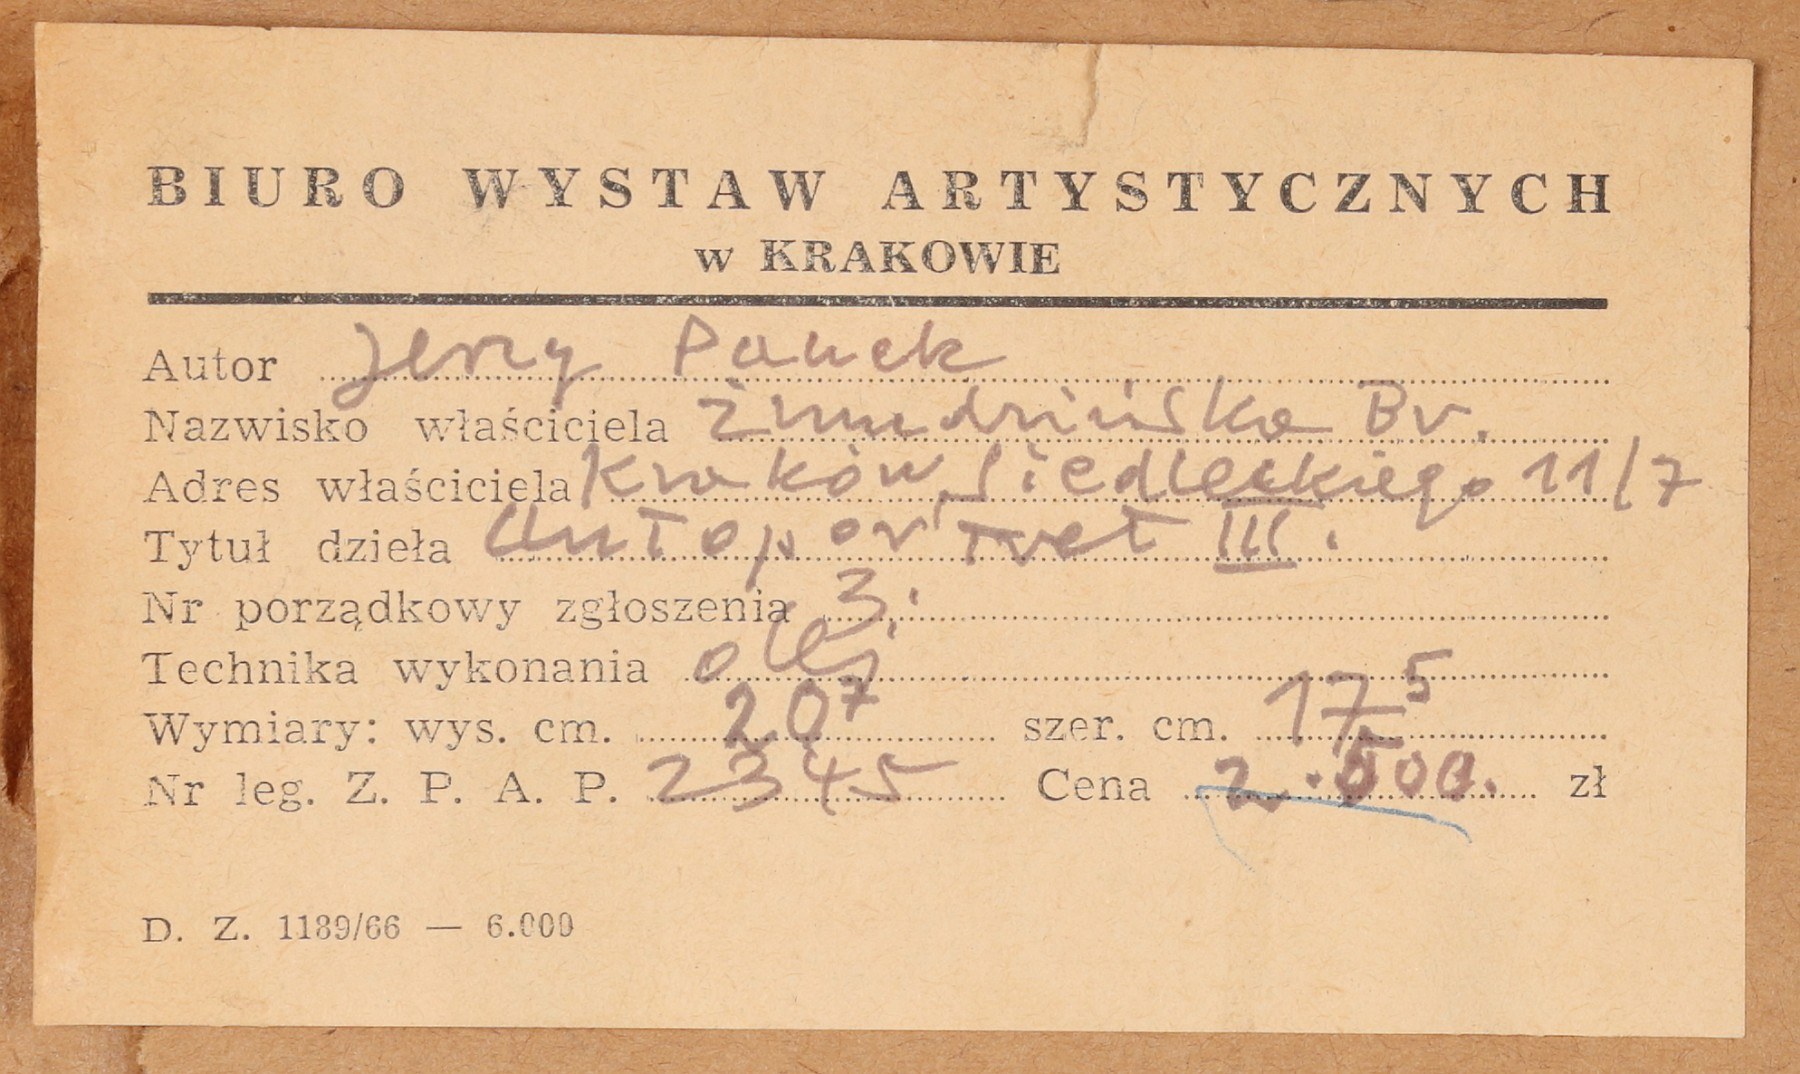 BIURO WYSTAW ARTYSTYCZNYCH
w KRAKOWIE
Autor Jerzy Panek
Nazwisko właściciela Żmudzińska Br.
Adres właściciela Kraków, Siedleckiego 11/7
Tytuł dzieła Autoportret III.
Nr porządkowy zgłoszenia 3.
Technika wykonania olej
Wymiary: wys. cm. 20⁷ szer. cm. 17⁵
Nr leg. Z. P. A. P. 2345 Cena 2.500. zł
D. Z. 1189/66 — 6.000